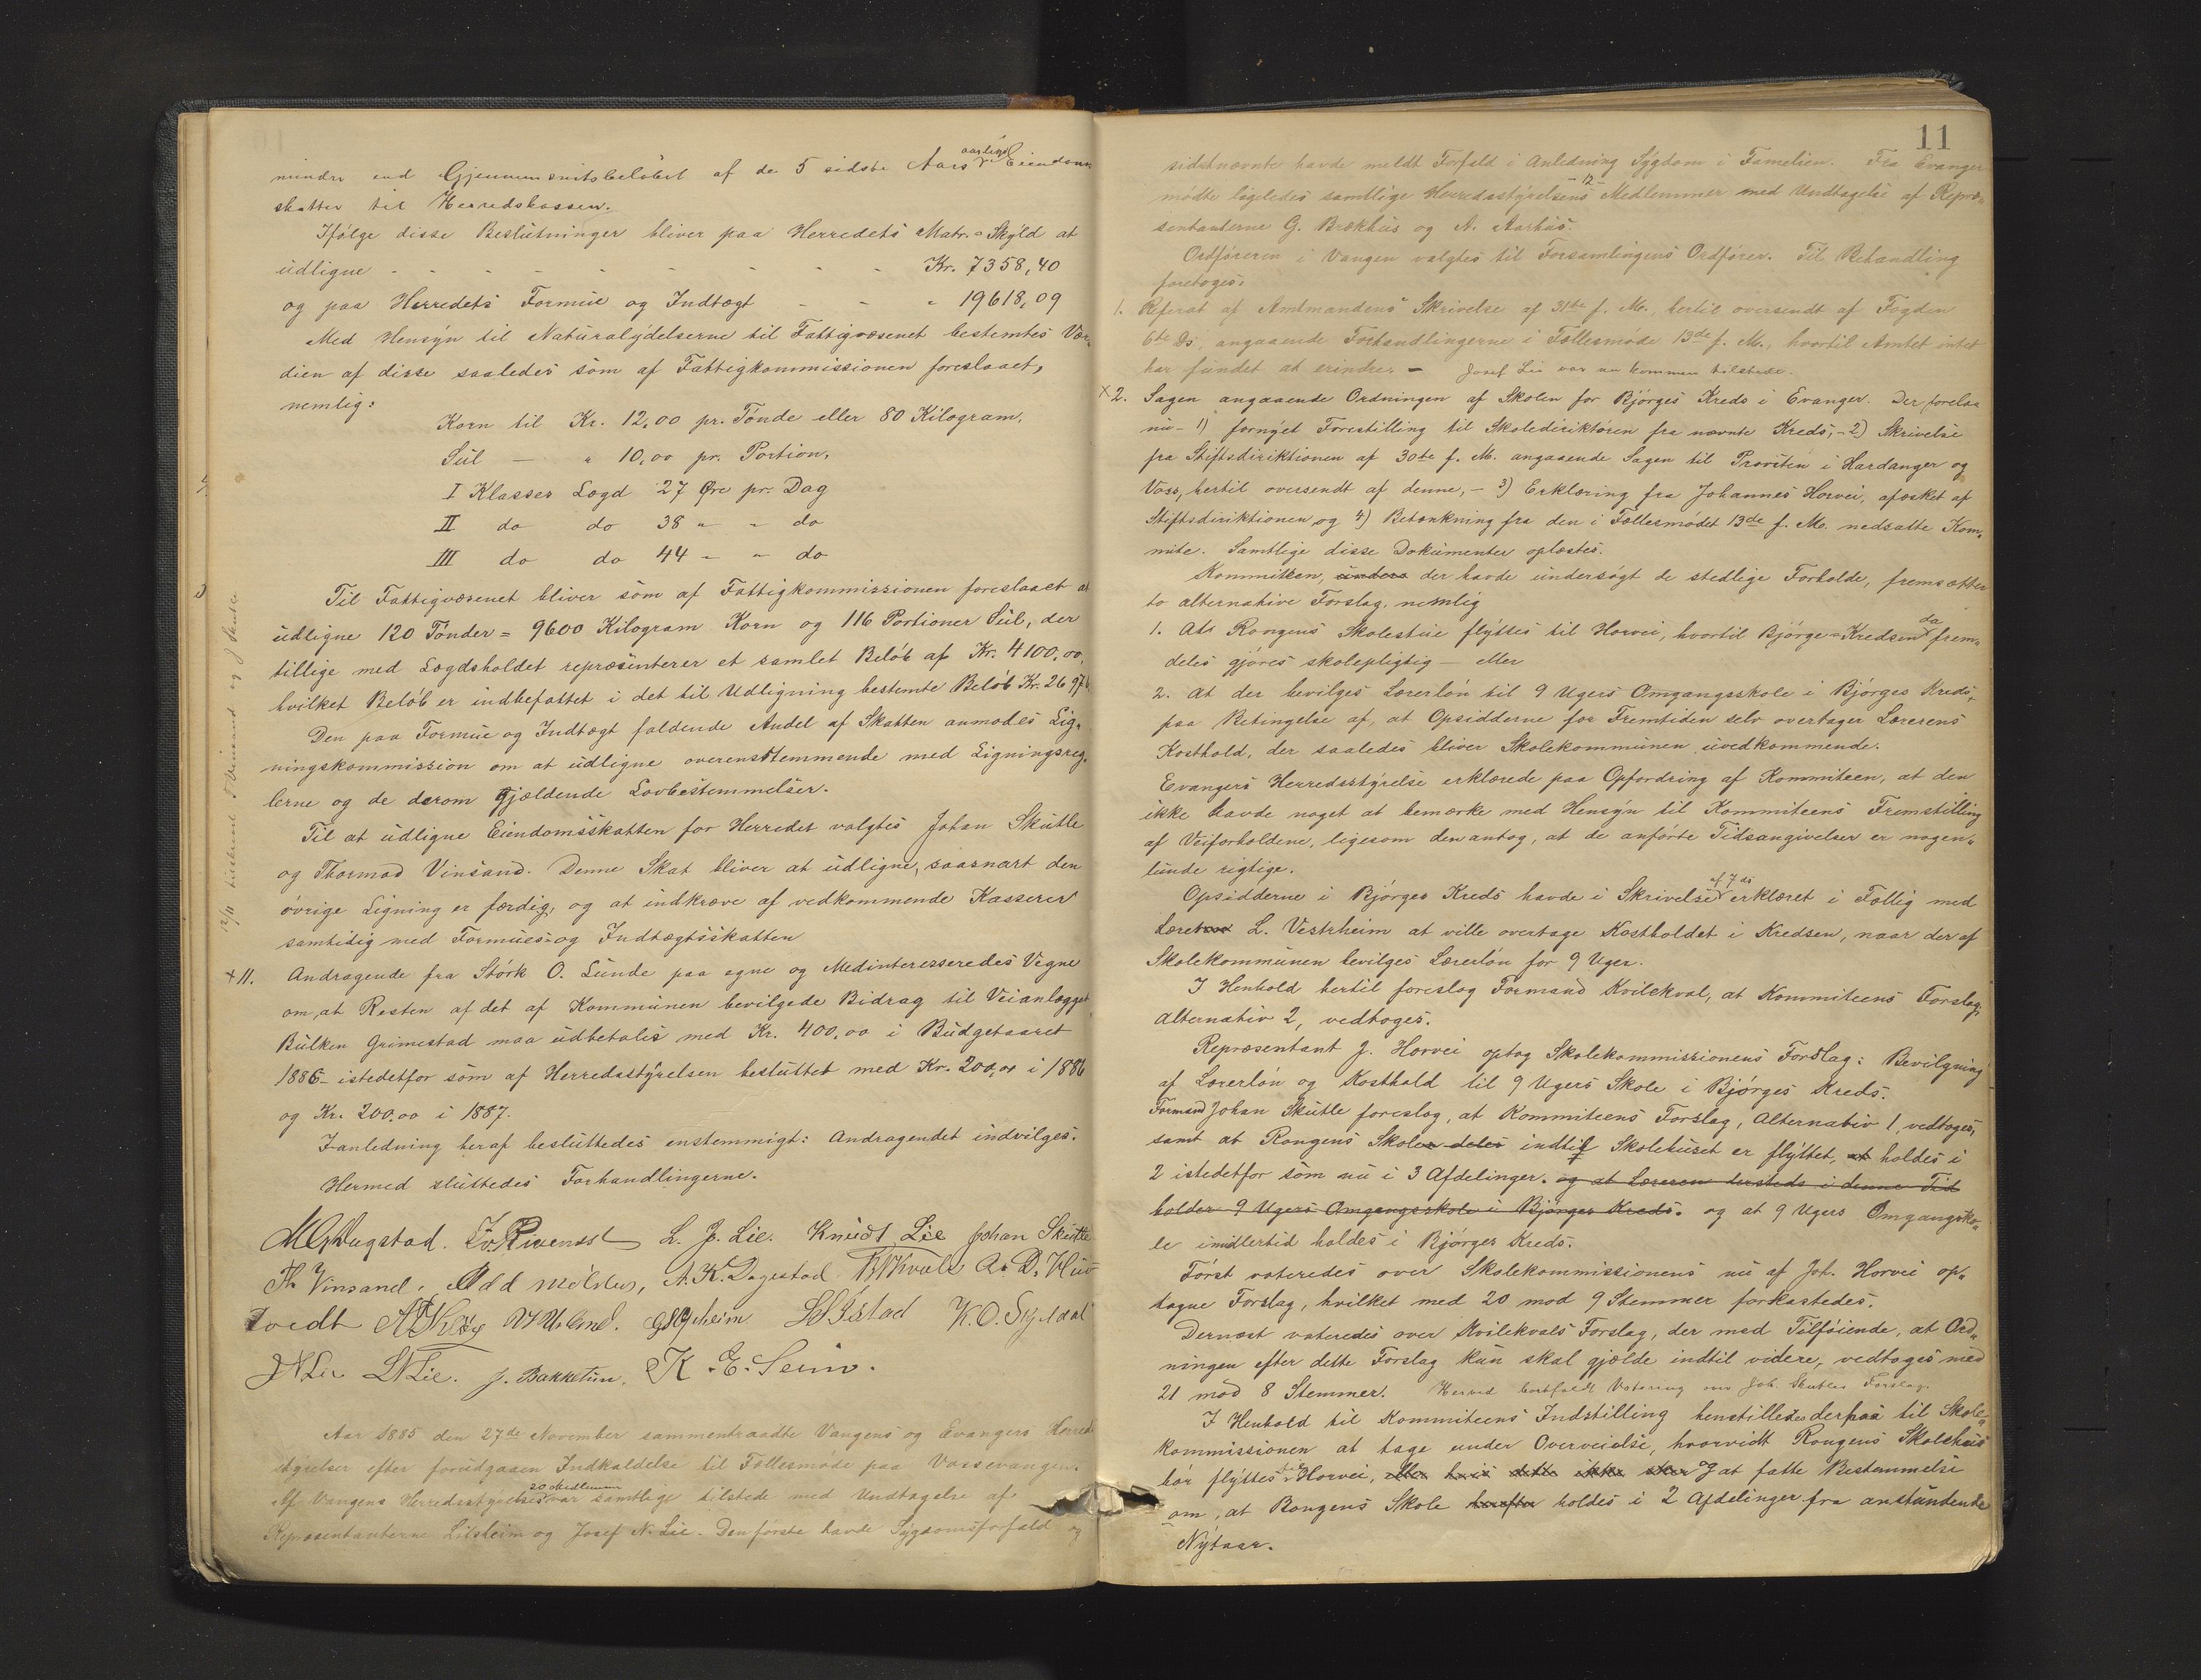 mindre end Gjennemsnitsbeløbet af de 5 sidste Aars aarlige Eiendoms
skatter til Herredskassen.
Ifølge disse Beslutninger bliver paa Herredets Matr.-Skyld at
udligne - - - - - - - - Kr. 7358,40
og paa Herredets Formue og Indtægt - - " 19618,09
Med Hensyn til Naturalydelserne til Fattigvæsenet bestemtes Vær-
dien af disse saaledes som af Fattigkommissionen foreslaaet,
nemlig:
Korn til Kr. 12,00 pr. Tønde eller 80 Kilogram.
Sul — " 10,00 pr. Portion,
I Klasses Lægd 27 Øre pr. Dag
II do do 38 " " do
III do do 44 " " do
Til Fattigvæsenet bliver som af Fattigkommissionen foreslaaet at
udligne 120 Tønder = 9600 Kilogram Korn og 116 Portioner Sul, der
tillige med Lægdsholdet repræsenterer et samlet Beløb af Kr. 4100,00,
hvilket Beløb er indbefattet i det til Udligning bestemte Beløb Kr. 2697
Den paa Formue og Indtægt faldende Andel af Skatten anmodes Lig-
ningskommission om at udligne overensstemmende med Ligningsreg-
lerne og de derom gjældende Lovbestemmelser.
Til at udligne Eiendomsskatten for Herredet valgtes Johan Skutle
og Thormod Vinsand. Denne Skat bliver at udligne, saasnart den
øvrige Ligning er færdig, og at indkræve af vedkommende Kasserer
samtidig med Formues- og Indtægtsskatten
+11. Andragende fra Størk O. Lunde paa egne og Medinteresseredes Vegne
om, at Resten af det af Kommunen bevilgede Bidrag til Veianlægget
Bulken Grimestad maa udbetales med Kr. 400,00 i Budgetaaret
1886 istedetfor som af Herredsstyrelsen besluttet med Kr. 200,00 i 1886
og Kr. 200,00 i 1887.
I anledning heraf besluttedes enstemmigt: Andragendet indvilges.
Hermed sluttedes Forhandlingerne.
L. J. Lie. Knudt Lie Johan Skutle
Th Vinsand. Odd Mølster, A. K. Dagestad
K. O. Skjeldal
N Lie L N Lie. J. Bakketun. K. E. Seim.
Aar 1885 den 27de November sammentraadte Vangens og Evangers Herreds
styrelser efter forudgaaen Indkaldelse til Fællesmøde paa Vossevangen.
Af Vangens Herredsstyrelses 20 Medlemmer var samtlige tilstede med Undtagelse af
Repræsentanterne Lilsheim og Josef N. Lie. Den første havde Sygdomsforfald og
11
sidstnævnte havde meldt Forfald i Anledning Sygdom i Familien. Fra Evanger
mødte ligeledes samtlige Herredsstyrelsens -12- Medlemmer med Undtagelse af Repræ-
sentanterne G. Brækhus og A. Aarhus.
Ordføreren i Vangen valgtes til Forsamlingens Ordfører. Til Behandling
foretoges:
1. Referat af Amtmandens Skrivelse af 31te f. M., hertil oversendt af Fogden
6te Ds., angaaende Forhandlingerne i Fællesmøde 13de f. M., hvortil Amtet intet
har fundet at erindre. — Josef Lie var nu kommen tilstede.
×2. Sagen angaaende Ordningen af Skolen for Bjørges Kreds i Evanger. Der forelaa
nu - 1) fornyet Forestilling til Skoledirektøren fra nævnte Kreds, - 2) Skrivelse
fra Stiftsdirektionen af 30te f. M. angaaende Sagen til Provsten i Hardanger og
Voss, hertil oversendt af denne, - 3) Erklæring fra Johannes Horvei, afæsket af
Stiftsdirektionen, og 4) Betænkning fra den i Fællesmødet 13de f. M. nedsatte Kom-
mite. Samtlige disse Dokumenter oplæstes.
Kommiteen, unders der havde undersøgt de stedlige Forholde, fremsætter
to alternative Forslag, nemlig
1. At Rongens Skolestue flyttes til Horvei, hvortil Bjørge-Kredsen da frem-
deles gjøres skolepligtig — eller
2. at der bevilges Lærerløn til 9 Ugers Omgangsskole i Bjørges Kreds,
paa Betingelse af, at Opsidderne for Fremtiden selv overtager Lærerens
Kosthold, der saaledes bliver Skolekommunen uvedkommende.
Evangers Herredsstyrelse erklærede paa Opfordring af Kommiteen, at den
ikke havde noget at bemærke med Hensyn til Kommiteens Fremstilling
af Veiforholdene, ligesom den antog, at de anførte Tidsangivelser er nogen-
lunde rigtige.
Opsidderne i Bjørges Kreds havde i Skrivelse af 7 ds erklæret i Fællig med
L. Vestrheim at ville overtage Kostholdet i Kredsen, naar der af
Skolekommunen bevilges Lærerløn for 9 Uger.
I Henhold hertil foreslog Formand Kvilekval, at Kommiteens Forslag,
Alternativ 2, vedtoges.
Repræsentant J. Horvei optog Skolekommissionens Forslag: Bevilgning
af Lærerløn og Kosthold til 9 Ugers Skole i Bjørges Kreds.
Formand Johan Skutle foreslog, at Kommiteens Forslag, Alternativ 1, vedtoges,
samt at Rongens Skole deles indtil Skolehuset er flyttet, at holdes i
2 istedetfor som nu i 3 Afdelinger. og at Læreren dersteds i denne Tid
holder 9 Ugers Omgangsskole i Bjørges Kreds. og at 9 Ugers Omgangsko-
le imidlertid holdes i Bjørges Kreds.
Først voteredes over Skolekommissionens nu af Joh. Horvei op-
tagne Forslag, hvilket med 20 mod 9 Stemmer forkastedes.
Dernæst voteredes over Kvilekvals Forslag, der med Tilføiende, at Ord-
ningen efter dette Forslag kun skal gjælde indtil videre, vedtoges med
21 mod 8 Stemmer. Herved bortfaldt Votering over Joh. Skutles Forslag.
I Henhold til Kommiteens Indstilling henstilledes derpaa til Skole-
kommissionen at tage under Overveielse, hvorvidt Rongens Skolehus
bør flyttes til Horvei, eller hvis dette ikke sker og at fatte Bestemmelse
om, at Rongens Skole herefter holdes i 2 Afdelinger fra anstundende
Nytaar.